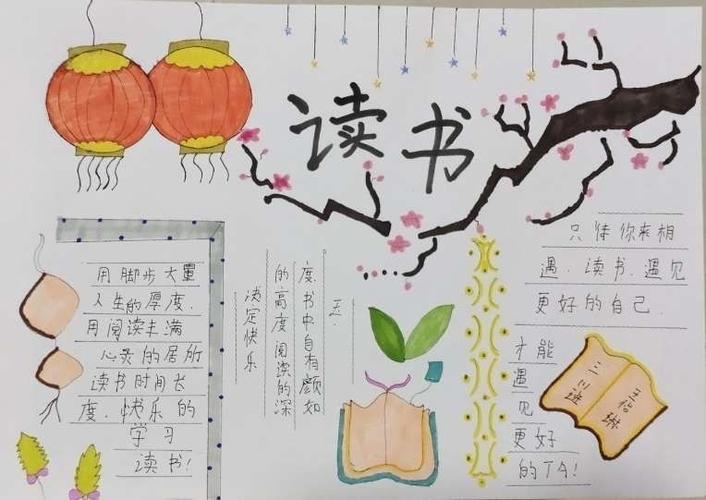 读书
用脚步大量
人生的厚度.
用阅读丰满
心灵的居所
读书时间长
度.快乐的
学习
读书!
决定快乐
的高度阅读的深
度.书中自有颜如
玉.
只待你来相
遇.读书.遇见
更好的自己.
才能
遇
见
更好
的TA!
三(1)班